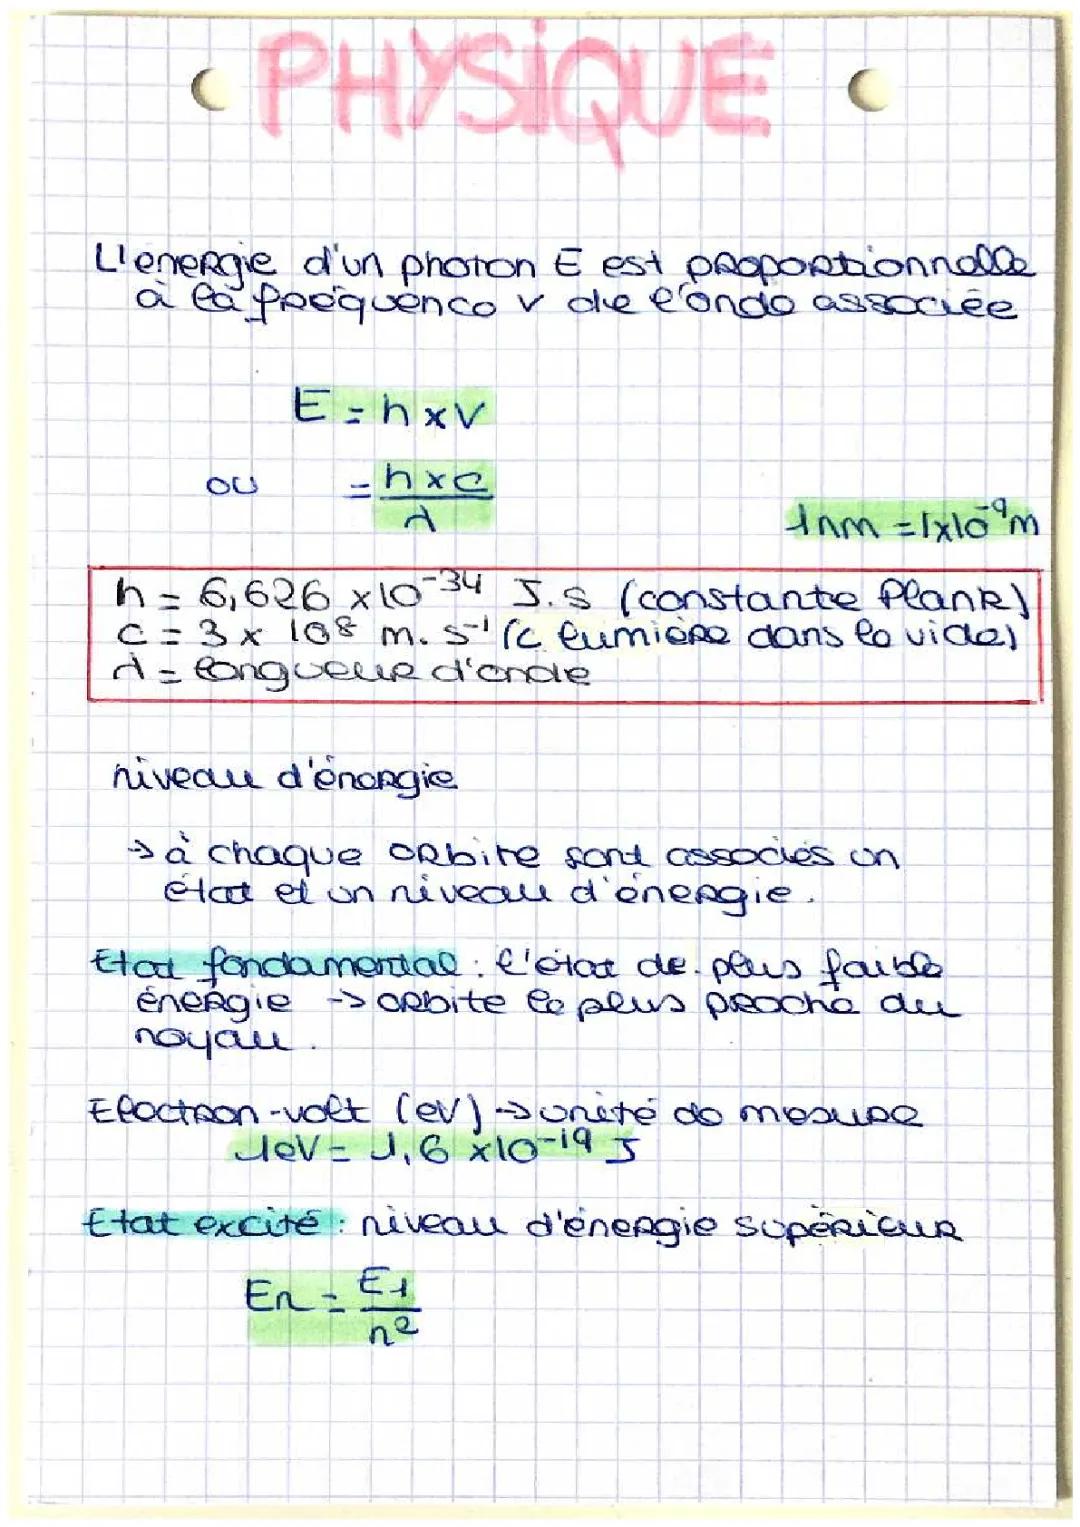 PHYSIQUE
L'énergie d'un photon E est proportionnelle
à la fréquence ν de l'onde associée
E = h x ν
ou = h x c / λ
1nm = 1x10⁻⁹m
h = 6,626 x10⁻³⁴ J.s (constante Plank)
c = 3 x 10⁸ m.s⁻¹ (c lumière dans le vide)
λ = longueur d'onde
niveau d'énergie
→ à chaque orbite sont associés un
état et un niveau d'énergie.
Etat fondamental : l'état de plus faible
énergie → orbite le plus proche du
noyau.
Electron-volt (eV) → unité de mesure
1eV = 1,6 x10⁻¹⁹ J
Etat excité : niveau d'énergie supérieur
En = E1 / n²